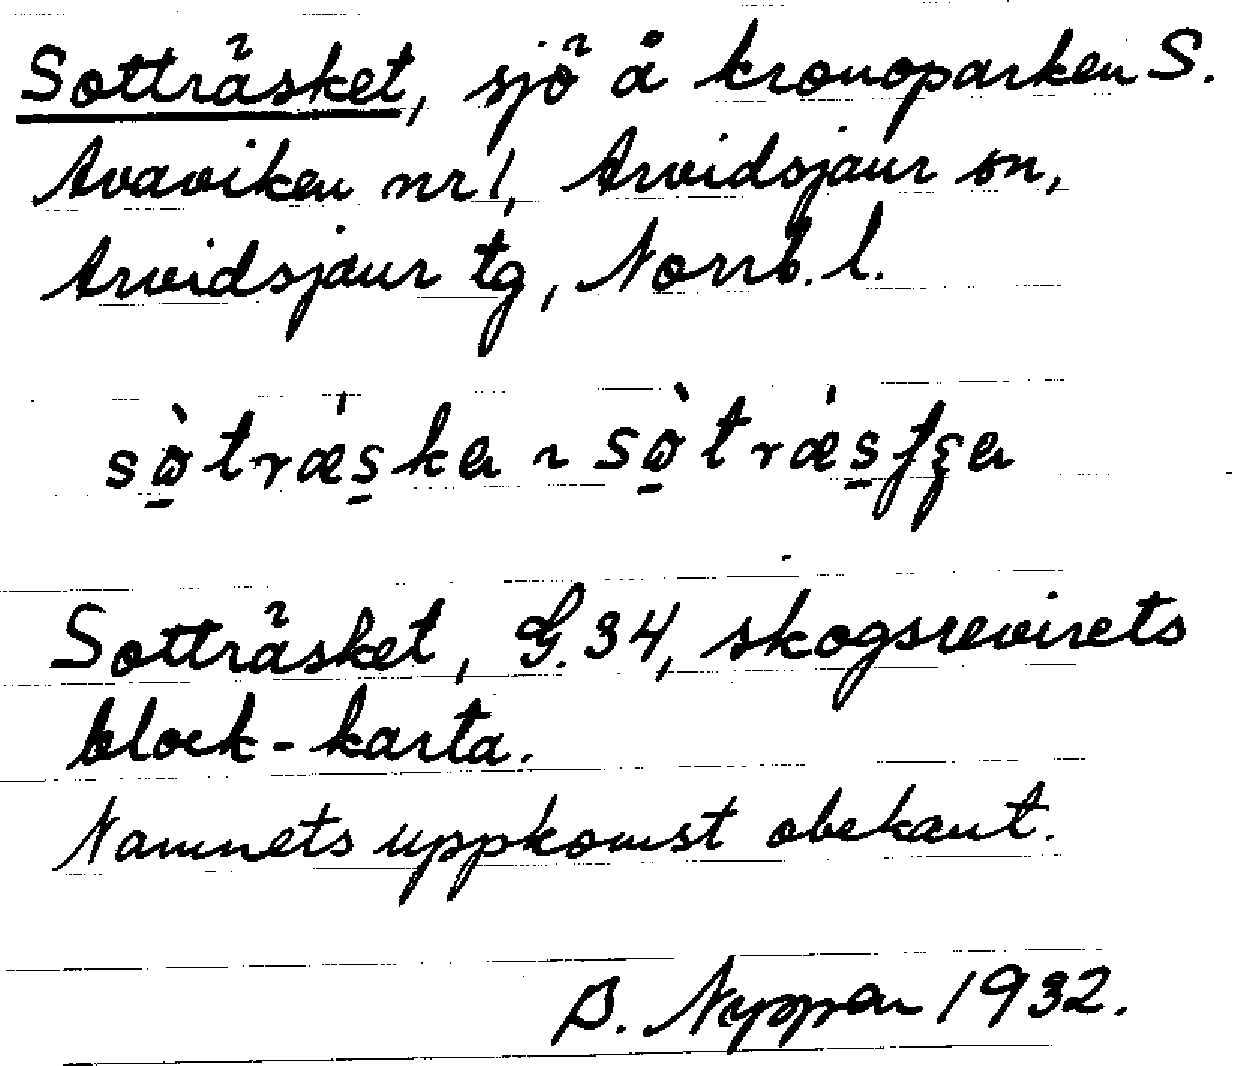 Sotträsket, sjö å kronoparken S.
Avaviken nr 1, Arvidsjaur sn,
Arvidsjaur tg, Norrb. l.
Sotträsket, G. 34, skogsrevirets
block-karta.
Namnets uppkomst obekant.
B. Nyppen 1932.